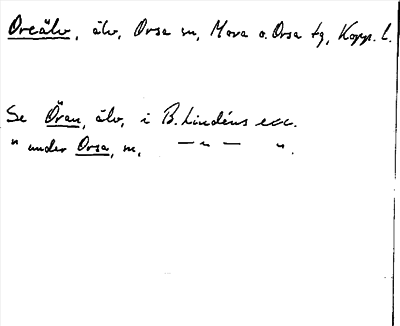 Oreälv, älv, Orsa sn, Mora o. Orsa tg, Kopp. l.
Se Öran, älv, i B. Lindéns exc.
" under Orsa, sn, — " — ".